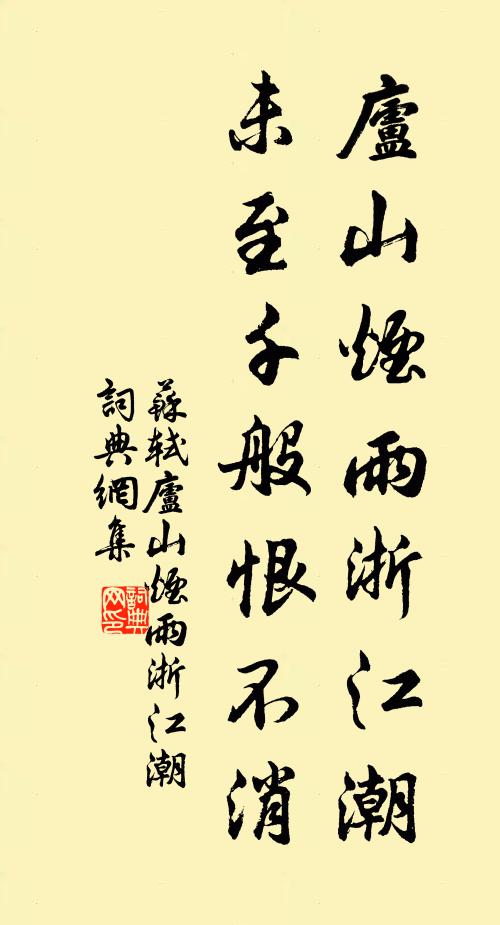 廬山煙雨浙江潮
未至千般恨不消
蘇軾廬山煙雨浙江潮
詞典網集
詞典
网印